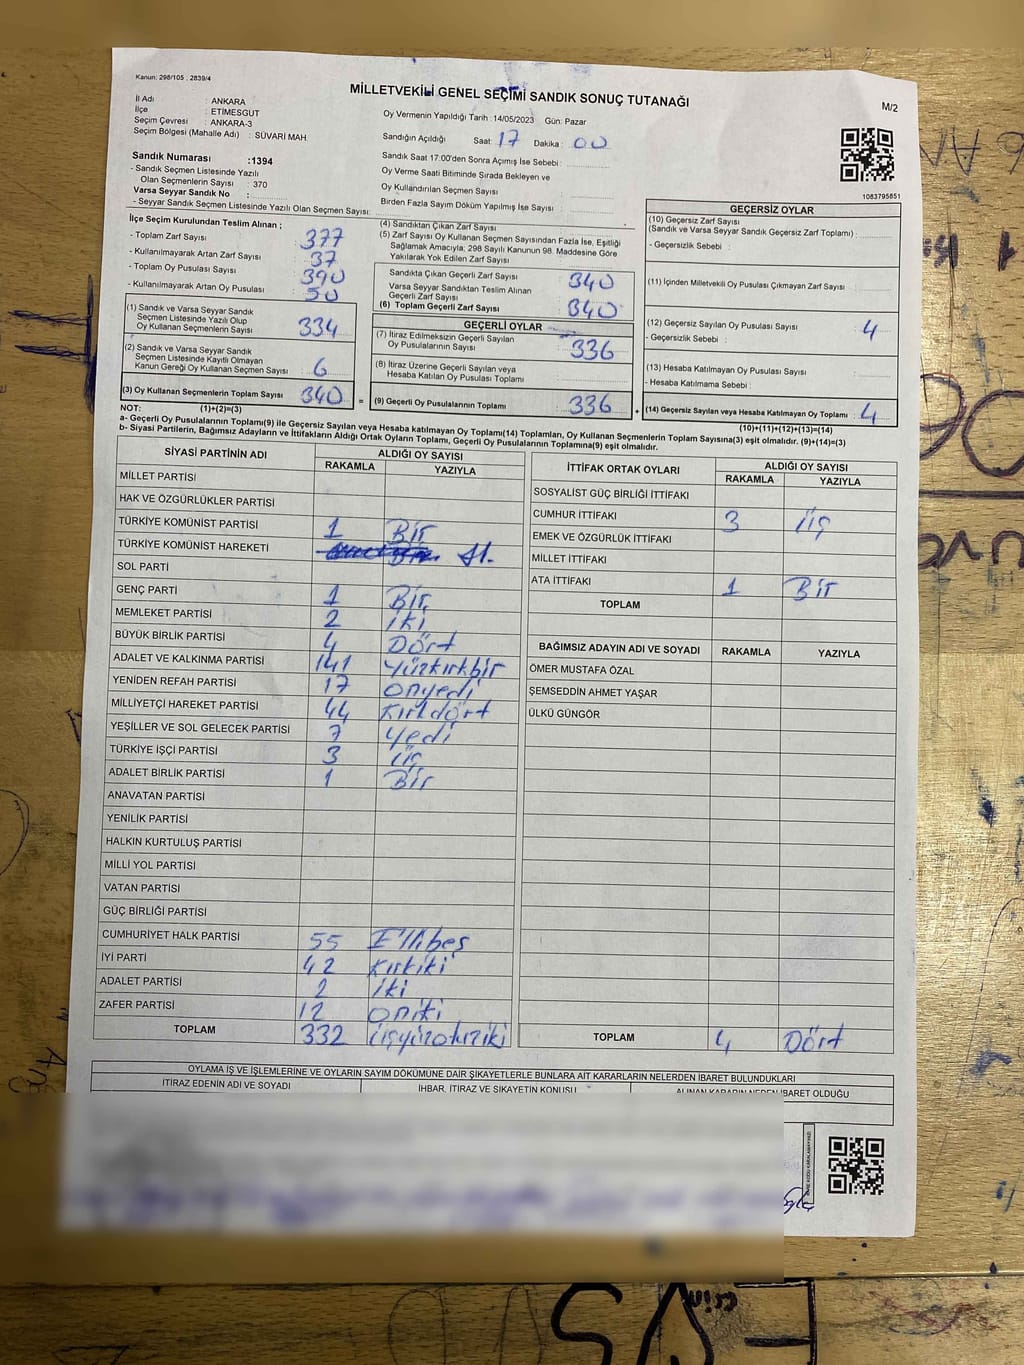 Kanun: 298/105 ; 2839/4
MİLLETVEKİLİ GENEL SEÇİMİ SANDIK SONUÇ TUTANAĞI
M/2
İl Adı : ANKARA
İlçe : ETİMESGUT
Seçim Çevresi : ANKARA-3
Seçim Bölgesi (Mahalle Adı) : SÜVARİ MAH.
Oy Vermenin Yapıldığı Tarih : 14/05/2023 Gün: Pazar
Sandığın Açıldığı Saat: 17 Dakika : 00
Sandık Saat 17:00'den Sonra Açımış İse Sebebi :
Oy Verme Saati Bitiminde Sırada Bekleyen ve
Oy Kullandırılan Seçmen Sayısı :
Birden Fazla Sayım Döküm Yapılmış İse Sayısı :
1083795851
Sandık Numarası :1394
- Sandık Seçmen Listesinde Yazılı
Olan Seçmenlerin Sayısı : 370
Varsa Seyyar Sandık No :
- Seyyar Sandık Seçmen Listesinde Yazılı Olan Seçmen Sayısı:
İlçe Seçim Kurulundan Teslim Alınan ;
- Toplam Zarf Sayısı : 377
- Kullanılmayarak Artan Zarf Sayısı : 37
- Toplam Oy Pusulası Sayısı : 390
- Kullanılmayarak Artan Oy Pusulası : 50
(1) Sandık ve Varsa Seyyar Sandık
Seçmen Listesinde Yazılı Olup
Oy Kullanan Seçmenlerin Sayısı : 334
(2) Sandık ve Varsa Seyyar Sandık
Seçmen Listesinde Kayıtlı Olmayan
Kanun Gereği Oy Kullanan Seçmen Sayısı : 6
(3) Oy Kullanan Seçmenlerin Toplam Sayısı 340 =
(4) Sandıktan Çıkan Zarf Sayısı :
(5) Zarf Sayısı Oy Kullanan Seçmen Sayısından Fazla İse, Eşitliği
Sağlamak Amacıyla; 298 Sayılı Kanunun 98. Maddesine Göre
Yakılarak Yok Edilen Zarf Sayısı :
Sandıkta Çıkan Geçerli Zarf Sayısı : 340
Varsa Seyyar Sandıktan Teslim Alınan
Geçerli Zarf Sayısı :
(6) Toplam Geçerli Zarf Sayısı : 340
GEÇERLİ OYLAR
(7) İtiraz Edilmeksizin Geçerli Sayılan
Oy Pusulalarının Sayısı : 336
(8) İtiraz Üzerine Geçerli Sayılan veya
Hesaba Katılan Oy Pusulası Toplamı :
(9) Geçerli Oy Pusulalarının Toplamı : 336 +
GEÇERSİZ OYLAR
(10) Geçersiz Zarf Sayısı
(Sandık ve Varsa Seyyar Sandık Geçersiz Zarf Toplamı) :
- Geçersizlik Sebebi :
(11) İçinden Milletvekili Oy Pusulası Çıkmayan Zarf Sayısı :
(12) Geçersiz Sayılan Oy Pusulası Sayısı : 4
- Geçersizlik Sebebi :
(13) Hesaba Katılmayan Oy Pusulası Sayısı :
- Hesaba Katılmama Sebebi :
(14) Geçersiz Sayılan veya Hesaba Katılmayan Oy Toplamı : 4
NOT: (1)+(2)=(3) (10)+(11)+(12)+(13)=(14)
a- Geçerli Oy Pusulalarının Toplamı(9) ile Geçersiz Sayılan veya Hesaba Katılmayan Oy Toplamı(14) Toplamları, Oy Kullanan Seçmenlerin Toplam Sayısına(3) eşit olmalıdır. (9)+(14)=(3)
b- Siyasi Partilerin, Bağımsız Adayların ve İttifakların Aldığı Ortak Oyların Toplamı, Geçerli Oy Pusulalarının Toplamına(9) eşit olmalıdır.
SİYASİ PARTİNİN ADI ALDIĞI OY SAYISI
RAKAMLA YAZIYLA
MİLLET PARTİSİ
HAK VE ÖZGÜRLÜKLER PARTİSİ
TÜRKİYE KOMÜNİST PARTİSİ 1 Bir
TÜRKİYE KOMÜNİST HAREKETİ
SOL PARTİ
GENÇ PARTİ 1 Bir
MEMLEKET PARTİSİ 2 iki
BÜYÜK BİRLİK PARTİSİ 4 Dört
ADALET VE KALKINMA PARTİSİ 141 Yüzkırkbir
YENİDEN REFAH PARTİSİ 17 onyedi
MİLLİYETÇİ HAREKET PARTİSİ 44 Kırkdört
YEŞİLLER VE SOL GELECEK PARTİSİ 7 Yedi
TÜRKİYE İŞÇİ PARTİSİ 3 üç
ADALET BİRLİK PARTİSİ 1 Bir
ANAVATAN PARTİSİ
YENİLİK PARTİSİ
HALKIN KURTULUŞ PARTİSİ
MİLLİ YOL PARTİSİ
VATAN PARTİSİ
GÜÇ BİRLİĞİ PARTİSİ
CUMHURİYET HALK PARTİSİ 55 Ellibeş
İYİ PARTİ 42 Kırkiki
ADALET PARTİSİ 2 iki
ZAFER PARTİSİ 12 oniki
TOPLAM 332 üçyüzotuziki
İTTİFAK ORTAK OYLARI ALDIĞI OY SAYISI
RAKAMLA YAZIYLA
SOSYALİST GÜÇ BİRLİĞİ İTTİFAKI
CUMHUR İTTİFAKI 3 üç
EMEK VE ÖZGÜRLÜK İTTİFAKI
MİLLET İTTİFAKI
ATA İTTİFAKI 1 Bir
TOPLAM
BAĞIMSIZ ADAYIN ADI VE SOYADI RAKAMLA YAZIYLA
ÖMER MUSTAFA ÖZAL
ŞEMSEDDİN AHMET YAŞAR
ÜLKÜ GÜNGÖR
TOPLAM 4 Dört
OYLAMA İŞ VE İŞLEMLERİNE VE OYLARIN SAYIM DÖKÜMÜNE DAİR ŞİKAYETLERLE BUNLARA AİT KARARLARIN NELERDEN İBARET BULUNDUKLARI
İTİRAZ EDENİN ADI VE SOYADI İHBAR, İTİRAZ VE ŞİKAYETİN KONUSU ALINAN KARARIN NEDEN İBARET OLDUĞU